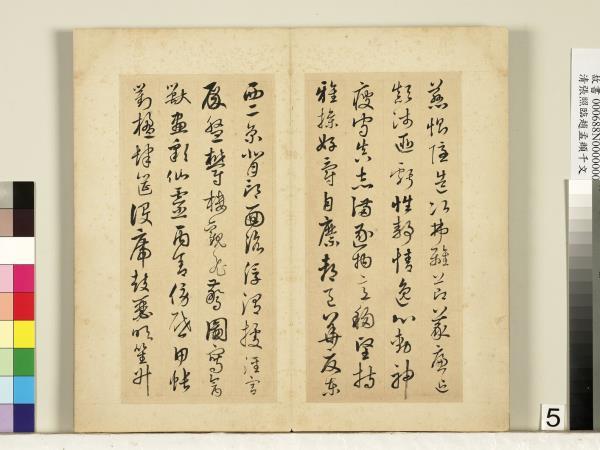 慈惻隱造次弗離節義廉退
顛沛匪虧性靜情逸心動神
疲守真志滿逐物意移堅持
雅操好爵自縻都邑華夏東
西二京背邙面洛浮渭據涇宮
殿盤鬱樓觀飛驚圖寫禽
獸畫彩仙靈丙舍傍啟甲帳
對楹肆筵設席鼓瑟吹笙升
故書 000688N0000000
清張照臨趙孟頫千文
5